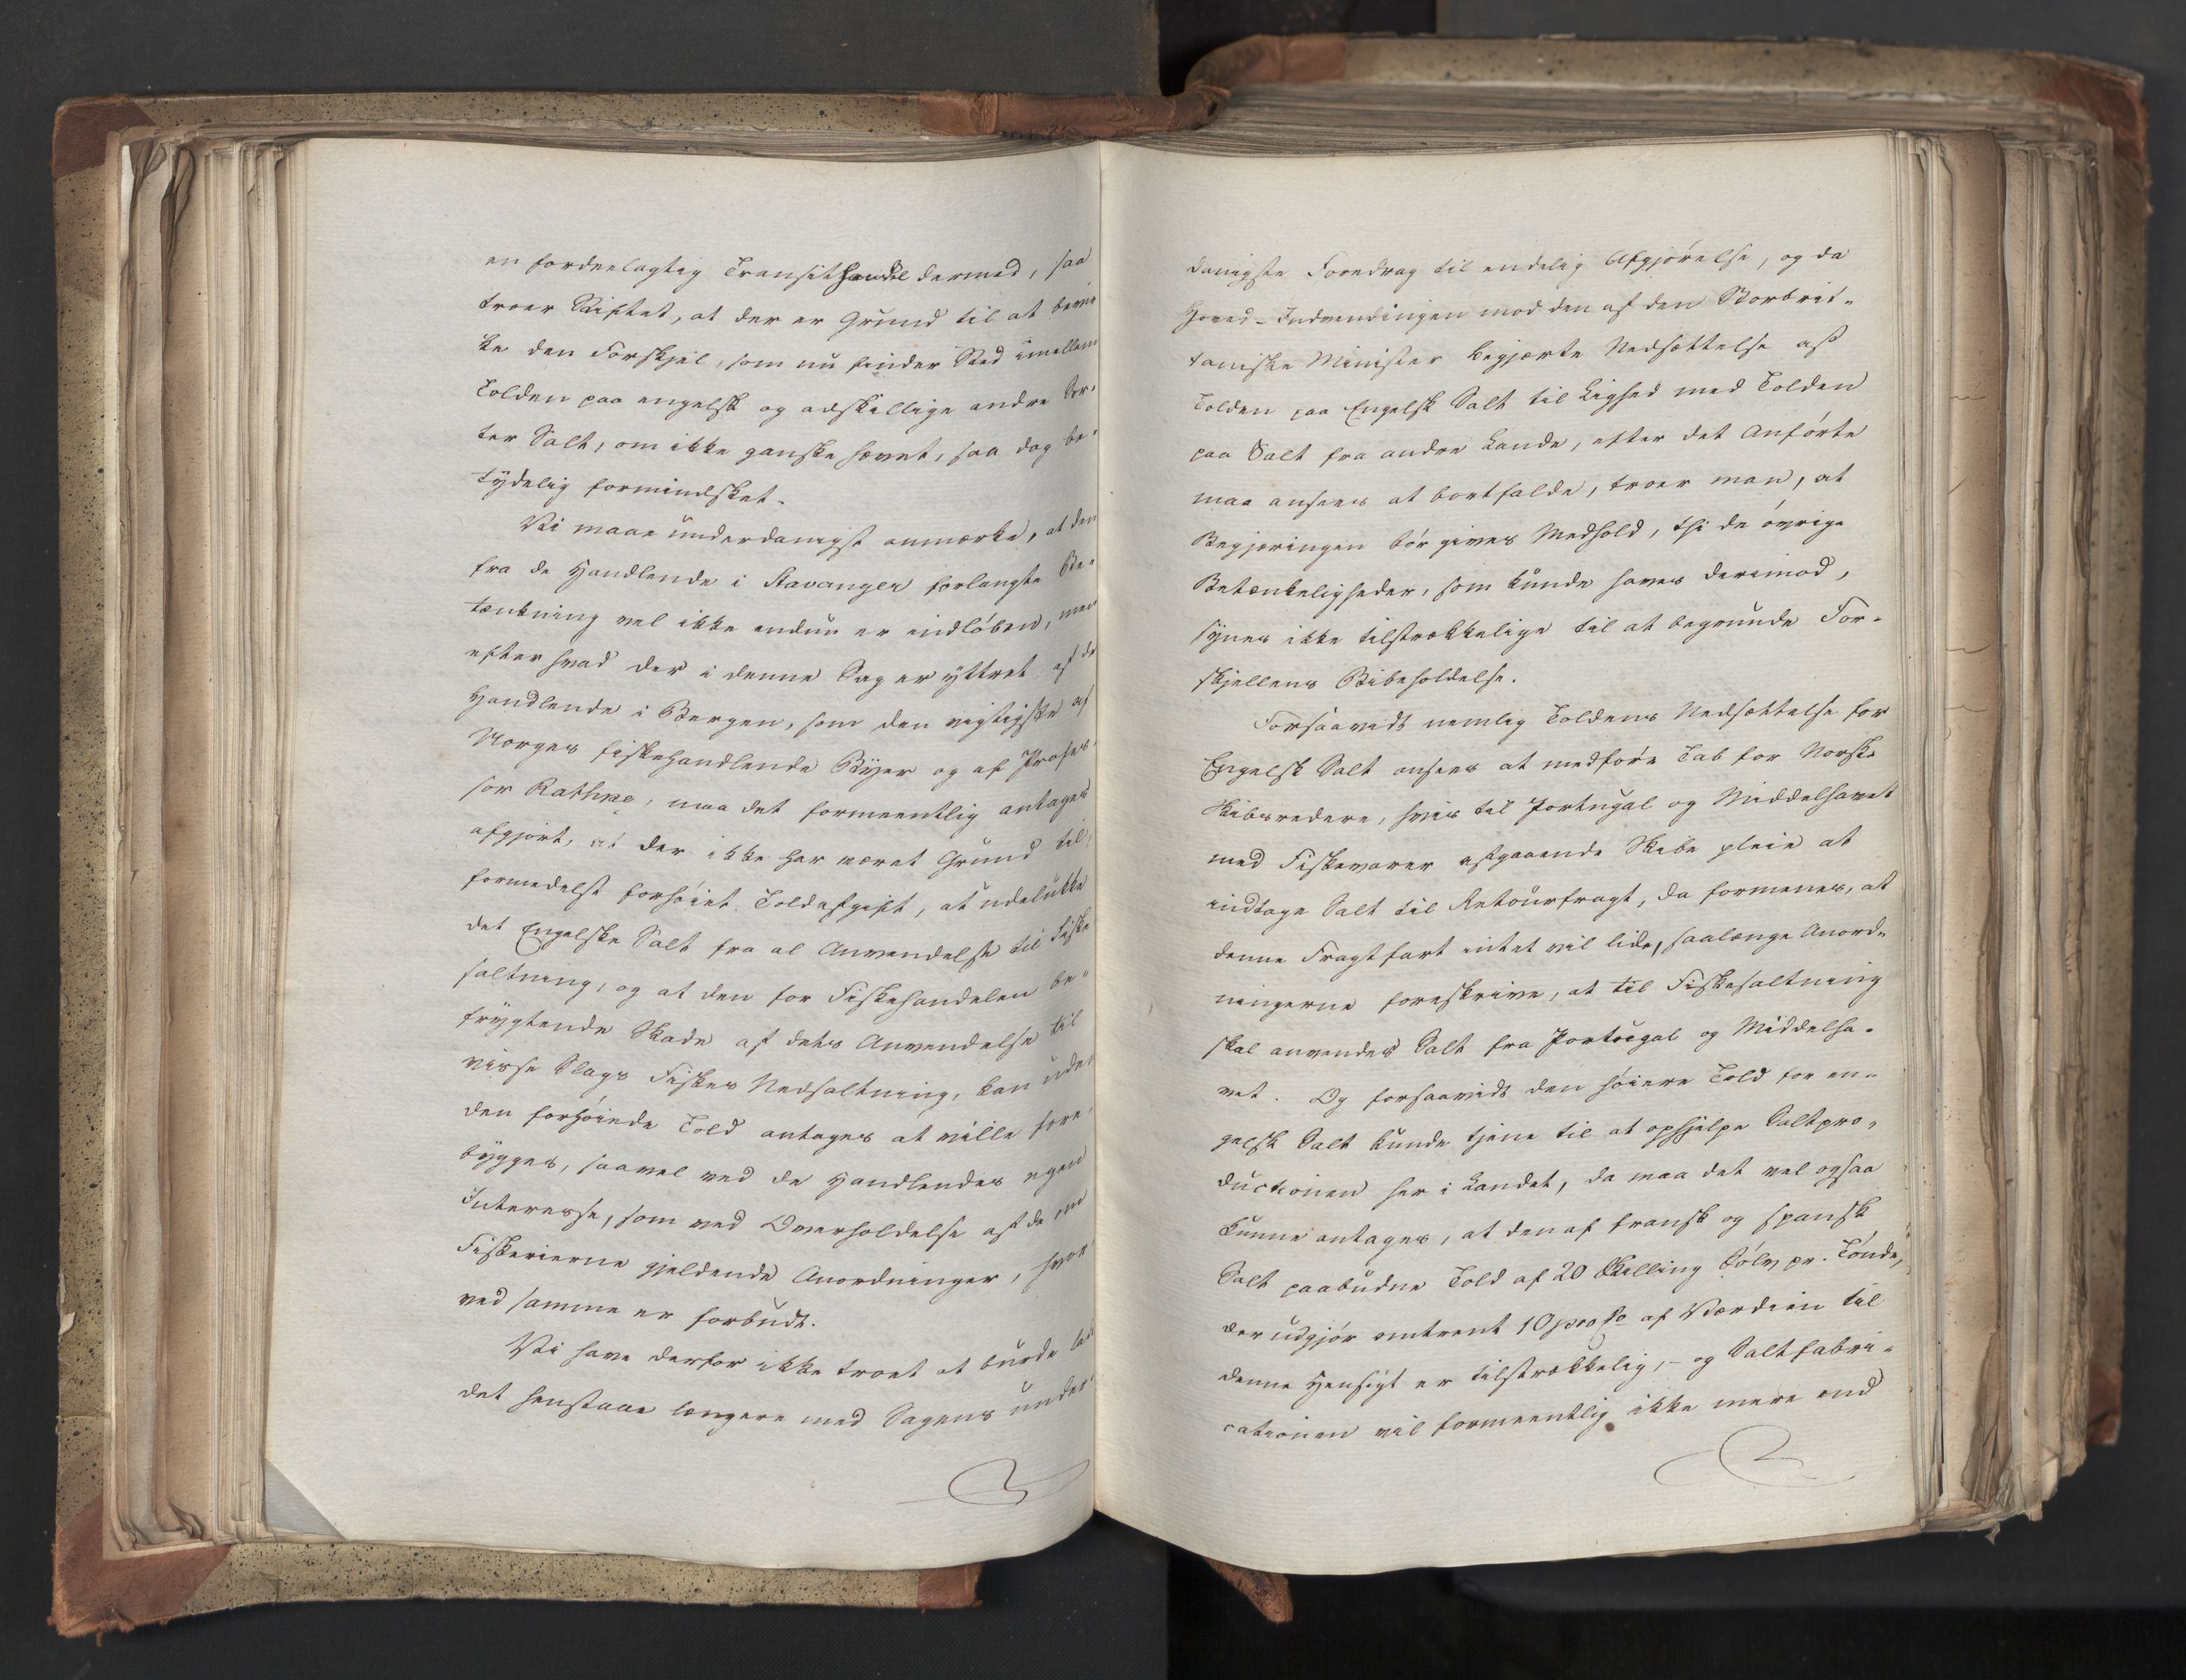 en fordeelagtig Transithandel dermed, saa
troer Stiftet, at der er Grund til at
ke den Forskjel, som nu finder Sted imellem
Tolden paa engelsk og adskillige andre Sor-
ter Salt, om ikke ganske hævet, saa dog be-
tydelig formindsket.
Vi maae underdanigst anmærke, at den
fra de Handlende i Stavanger forlangte Be-
tænkning vel ikke endnu er indløben, men
efter hvad der i denne Sag er yttret af de
Handlende i Bergen, som den vigtigste af
Norges fiskehandlende Byer og af Profes-
sor Rathke, maa det formeentlig antages
afgjort, at der ikke har været Grund til,
formedelst forhøiet Toldafgift, at udelukke
det Engelske Salt fra al Anvendelse til Fiske
saltning, og at den for Fiskehandelen be-
frygtende Skade af dets Anvendelse til
visse Slags Fiskes Nedsaltning, kan uden
den forhøiede Told antages at ville fore-
bygges, saavel ved de Handlendes egen
Interesse, som ved Overholdelse af de om
Fiskerierne gjeldende Anordninger, hvor
ved samme er forbudt.
Vi have derfor ikke troet at burde lade
det henstaae længere med Sagens under
danigste Foredrag til endelig Afgjørelse, og da
Hoved-Indvendingen mod den af den Storbrit-
taniske Minister begjærte Nedsættelse af
Tolden paa Engelsk Salt til Lighed med Tolden
paa Salt fra andre Lande, efter det Anførte
maa ansees at bortfalde, troer man, at
Begjæringen bør gives Medhold, thi de øvrige
Betænkeligheder, som kunde haves derimod,
synes ikke tilstrækkelige til at begrunde For-
skjellens Bibeholdelse.
Forsaavidt nemlig Toldens Nedsættelse for
Engelsk Salt ansees at medføre Tab for Norske
Skibsredere, hvis til Portugal og Middelhavet
med Fiskevarer afgaaende Skibe pleie at
indtage Salt til Retourfragt, da formenes, at
denne Fragtfart intet vil lide, saalænge Anord-
ningerne foreskrive, at til Fiskesaltning
skal anvendes Salt fra Portugal og Middelha-
vet. Og forsaavidt den høiere Told for en-
gelsk Salt kunde tjene til at ophjelpe Saltpro-
ductionen her i Landet, da maa det vel ogsaa
kunne antages, at den af fransk og spansk
Salt paabudne Told af 20 Skilling Sølv pr. Tønde,
der udgjør omtrent 10 pro Co af Værdien til
denne Hensigt er tilstrækkelig, - og Saltfabri-
cationen vil formeentlig ikke mere end